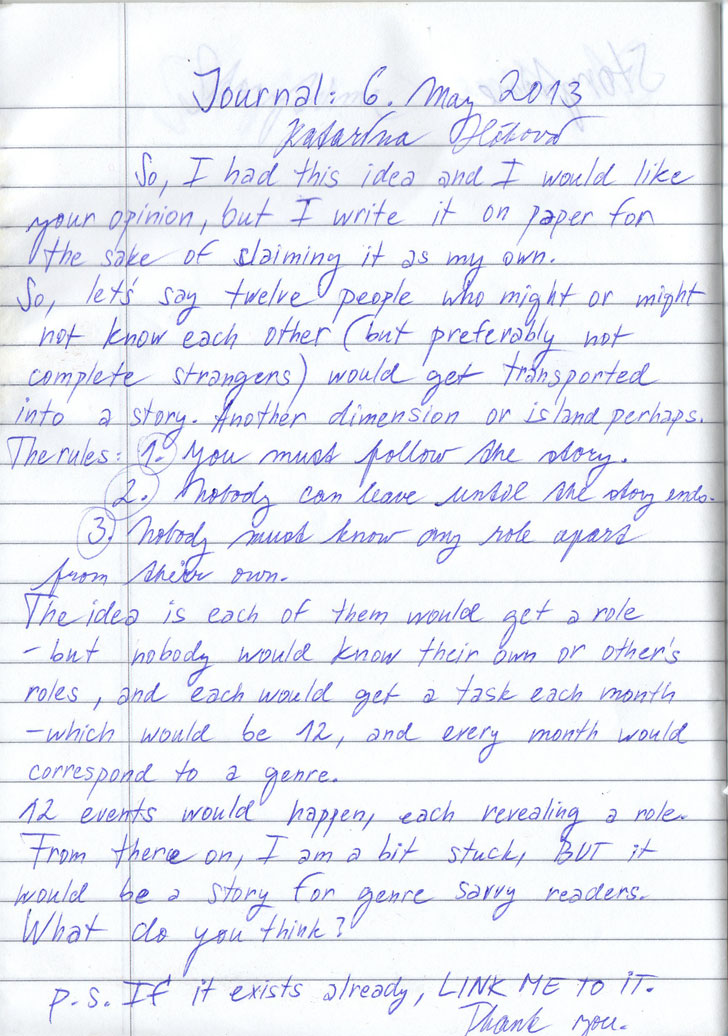 Journal: 6. May 2013
Katarína
So, I had this idea and I would like
your opinion, but I write it on paper for
the sake of claiming it as my own.
So, let's say twelve people who might or might
not know each other (but preferably not
complete strangers) would get transported
into a story. Another dimension or island perhaps.
The rules: 1. You must follow the story.
2. Nobody can leave until the story ends.
3. Nobody must know any role apart
from their own.
The idea is each of them would get a role
- but nobody would know their own or other's
roles, and each would get a task each month
- which would be 12, and every month would
correspond to a genre.
12 events would happen, each revealing a role.
From there on, I am a bit stuck, BUT it
would be a story for genre savvy readers.
What do you think?
P.S. If it exists already, LINK ME TO IT.
Thank you.